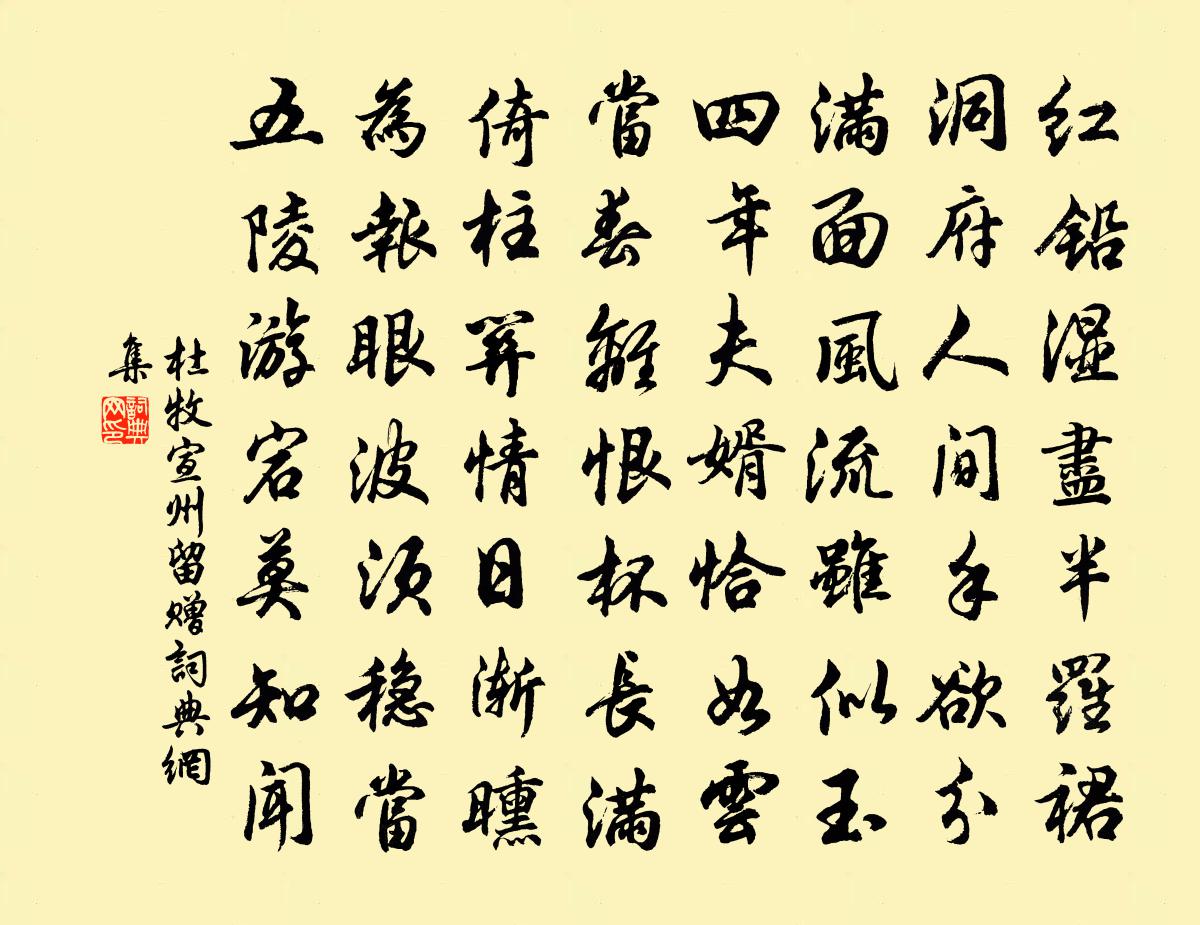 红鉛湿盡半羅裙
洞府人间手欲分
满面風流雖似玉
四年夫婿恰如雲
當春離恨杯長满
倚柱關情日渐曛
為報眼波须稳當
五陵游宕莫知聞
杜牧宣州留赠詞典網
集
詞典
网印